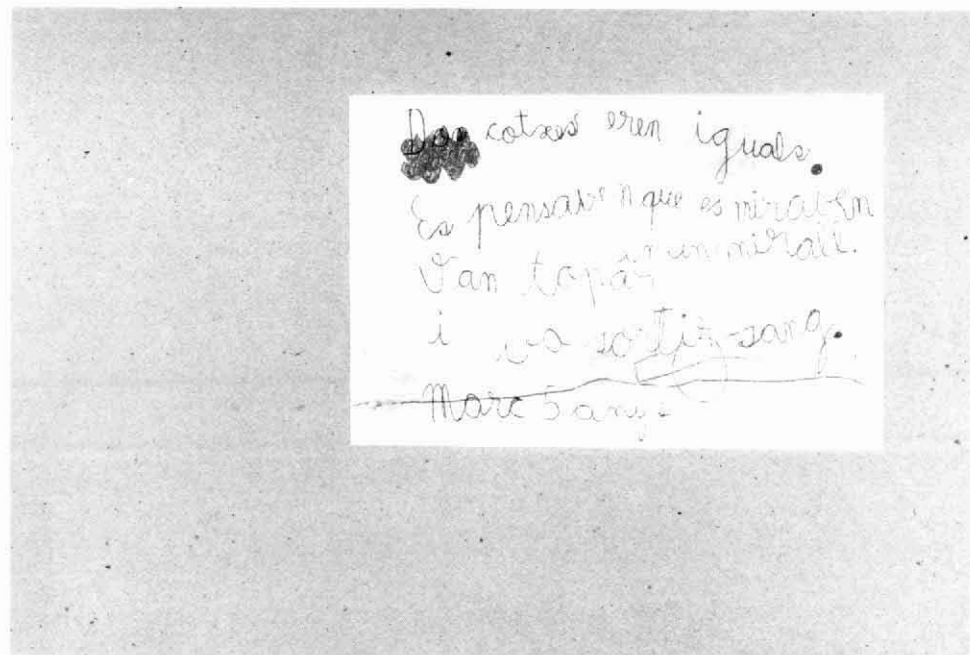 Dos cotxes eren iguals.
Es pensaven que es miraven
en un mirall.
Van topar
i va sortir sang.
Marc 5 anys